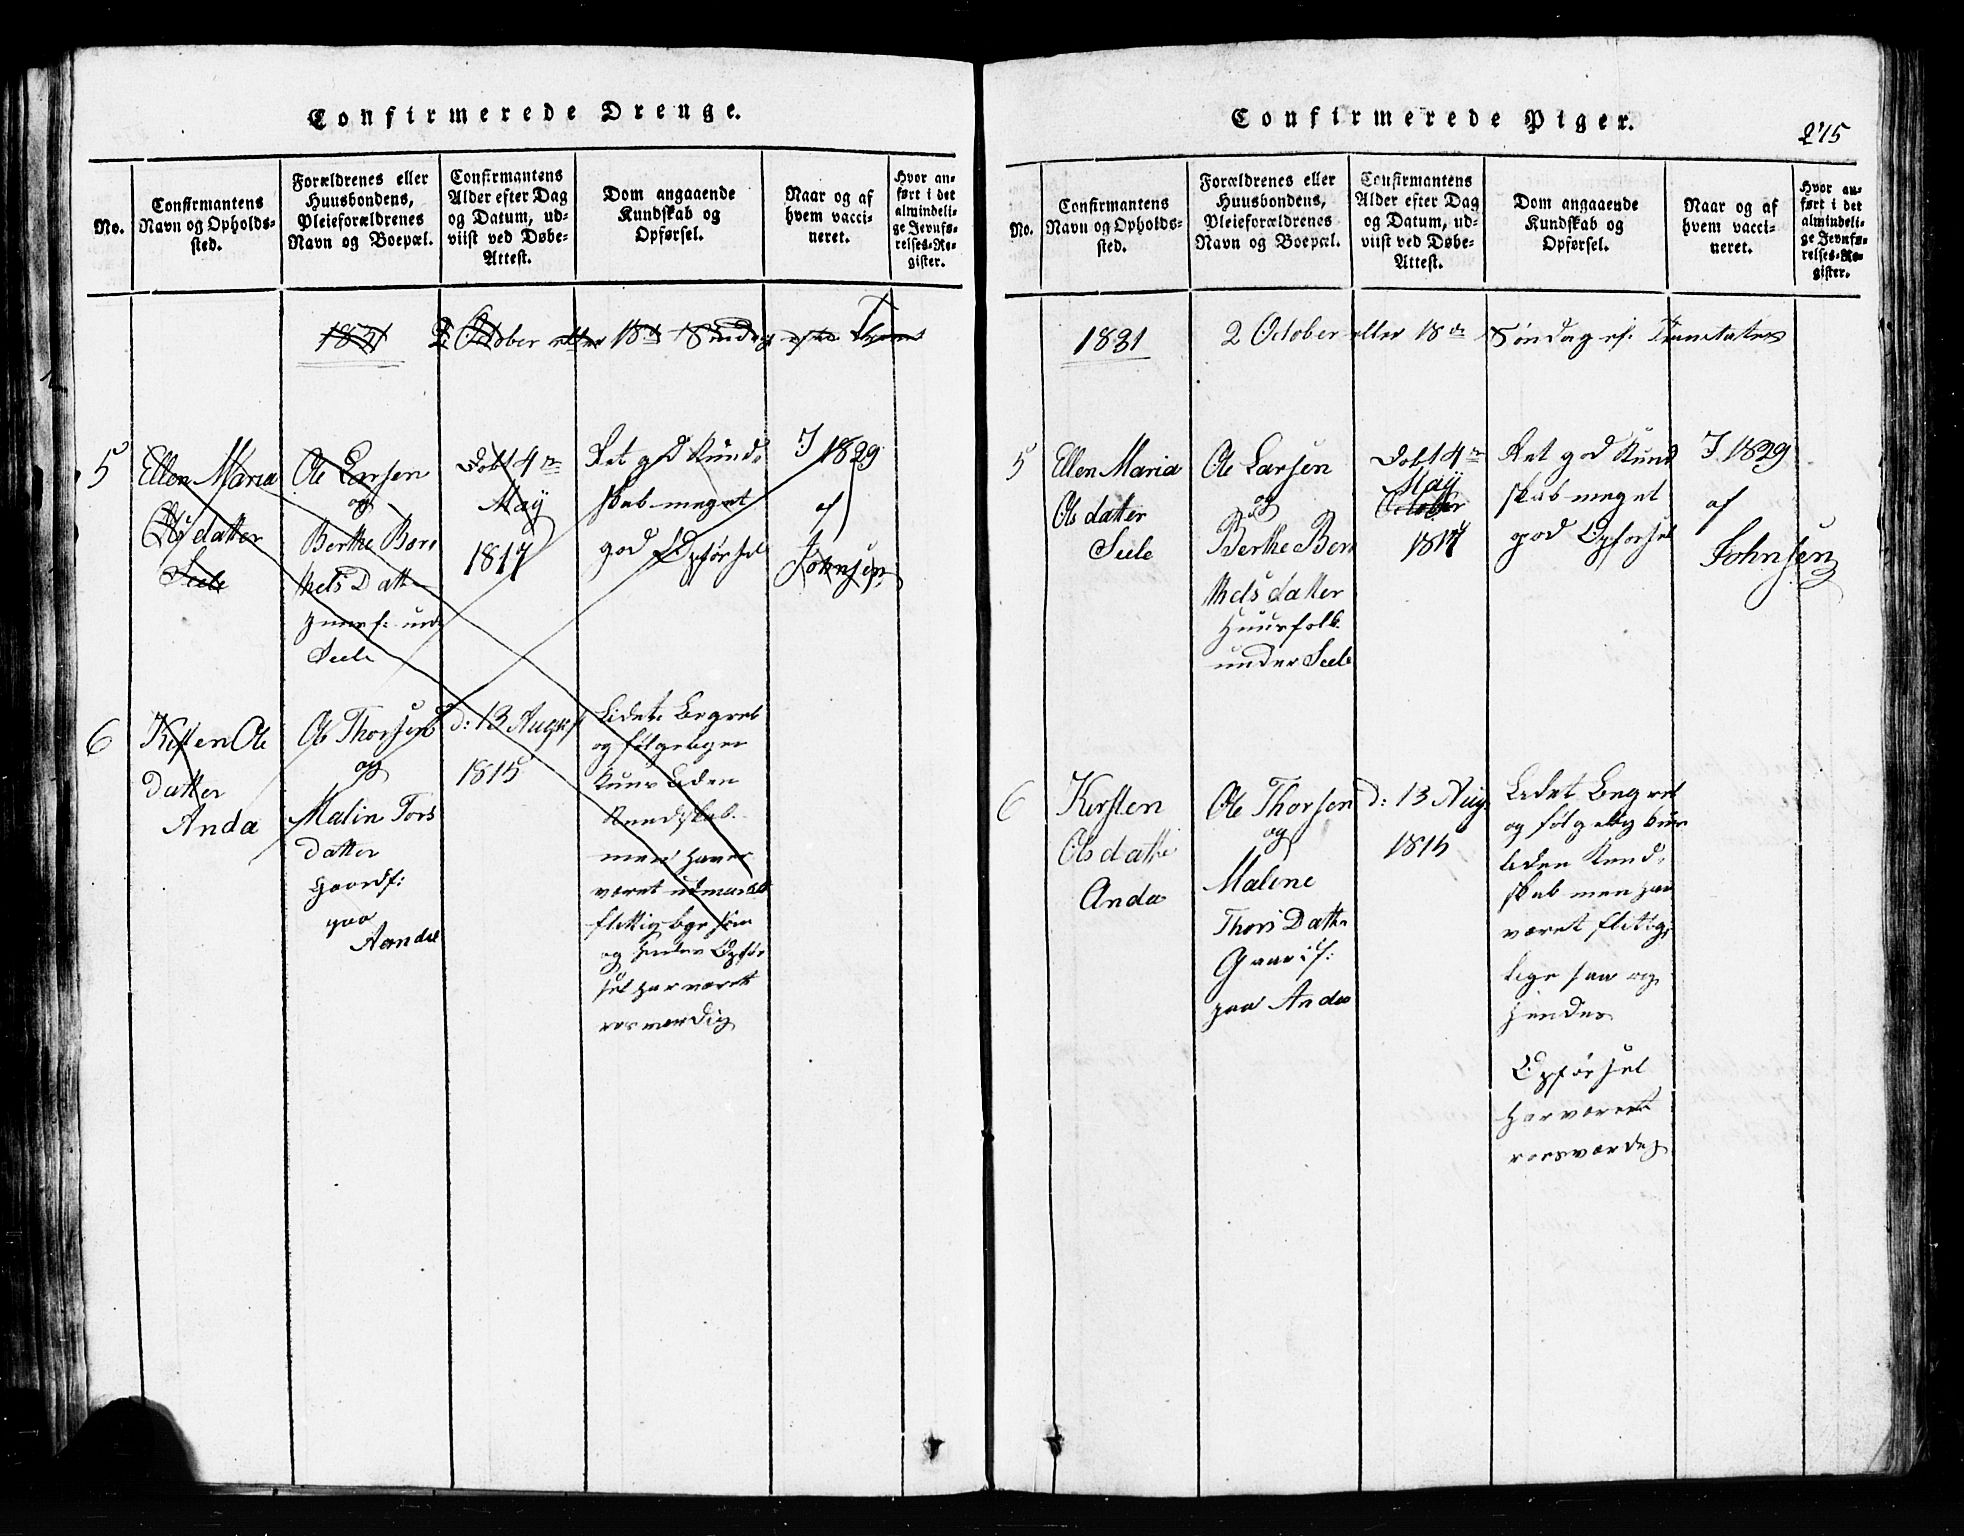 Confirmerede Drenge.
No.
Confirmantens
Navn og Opholds-
sted.
Forældrenes eller
Huusbondens,
Pleieforældrenes
Navn og Boepæl.
Confirmantens
Alder efter Dag
og Datum, ud-
viist ved Døbe-
Attest.
Dom angaaende
Kundskab og
Opførsel.
Naar og af
hvem vacci-
neret.
Hvor an-
ført i det
almindeli-
ge Jevnfø-
relses-Re-
gister.
1831 2 October eller 18de Søndag
5
Ellen Maria
Ols datter
Seele
Ole Larsen
og
Berthe Bere
thels Datt
Huusf: und
Seele
Døbt 4de
May
1817
Ret god Kund-
skab meget
god Opførsel
I 1829
af
Johnsen
6
Kisten Ole
Datter
Anda
Ole Thorsen
og
Malin Tors
Datter
Gaardf:
paa
Aandae
d: 13 August
1815
Lidet Begreb
og følgeligen
kuns liden
Kundskab
men haver
været udmærket
flittig lige saa
og hendes Opfør
sel har været
rosværdig
Confirmerede Piger.
275
No.
Confirmantens
Navn og Opholds-
sted.
Forældrenes eller
Huusbondens,
Pleieforældrenes
Navn og Boepæl.
Confirmantens
Alder efter Dag
og Datum, ud-
viist ved Døbe-
Attest.
Dom angaaende
Kundskab og
Opførsel.
Naar og af
hvem vacci-
neret.
Hvor an-
ført i det
almindeli-
ge Jevnfø-
relses-Re-
gister.
1831 2 October eller 18de Søndag ef. Trinitatis
5
Ellen Maria
Ols datter
Seele
Ole Larsen
og
Berthe Ber
thels datter
Huusfolk
under Seele
Døbt 4de
May
October
1817
Ret god Kund
skab meget
god Opførsel
I 1829
af
Johnsen
6
Kirsten
Ols datte
Anda
Ole Thorsen
og
Malene
Thors Datte
Gaardf:
paa Anda
d: 13 Aug.
1815
Lidet Begreb
og følgelig kun
liden Kund-
skab men har
været flittig,
lige saa og
hendes
Opførsel
har været
roesværdig